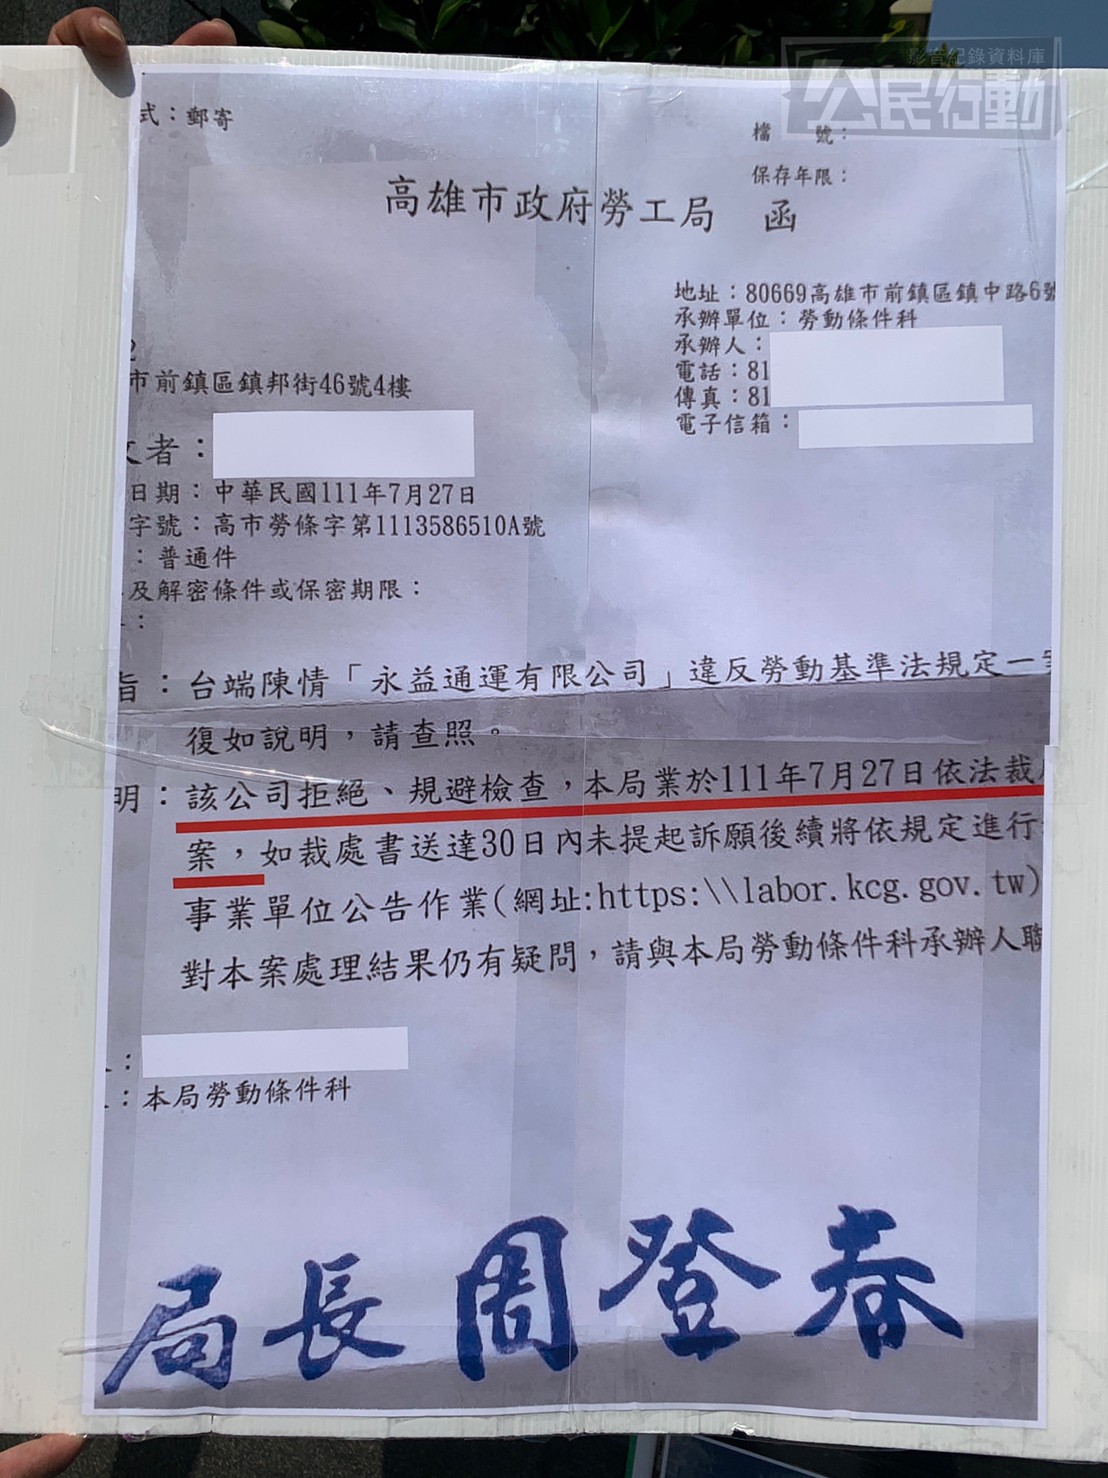 影音紀錄資料庫
公民行動
式：郵寄
檔　號：
保存年限：
高雄市政府勞工局　函
地址：80669高雄市前鎮區鎮中路6號
承辦單位：勞動條件科
承辦人：
電話：81
傳真：81
電子信箱：
2
市前鎮區鎮邦街46號4樓
文者：
日期：中華民國111年7月27日
字號：高市勞條字第1113586510A號
：普通件
及解密條件或保密期限：
：
旨：台端陳情「永益通運有限公司」違反勞動基準法規定一案
復如說明，請查照。
明：該公司拒絕、規避檢查，本局業於111年7月27日依法裁
案，如裁處書送達30日內未提起訴願後續將依規定進行
事業單位公告作業(網址:https:\\labor.kcg.gov.tw)
對本案處理結果仍有疑問，請與本局勞動條件科承辦人聯
：
：本局勞動條件科
局長周登春